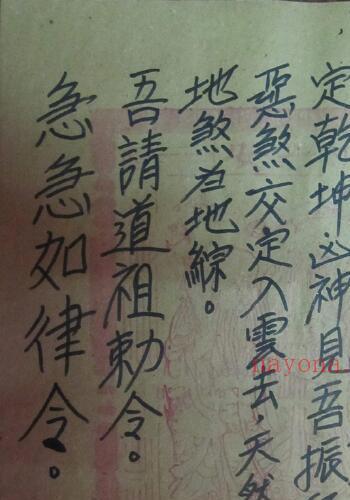 定乾坤凶神見吾振
惡煞交定入雲去，天然
地煞为地綜。
吾請道祖勅令。
急急如律令。
nayona